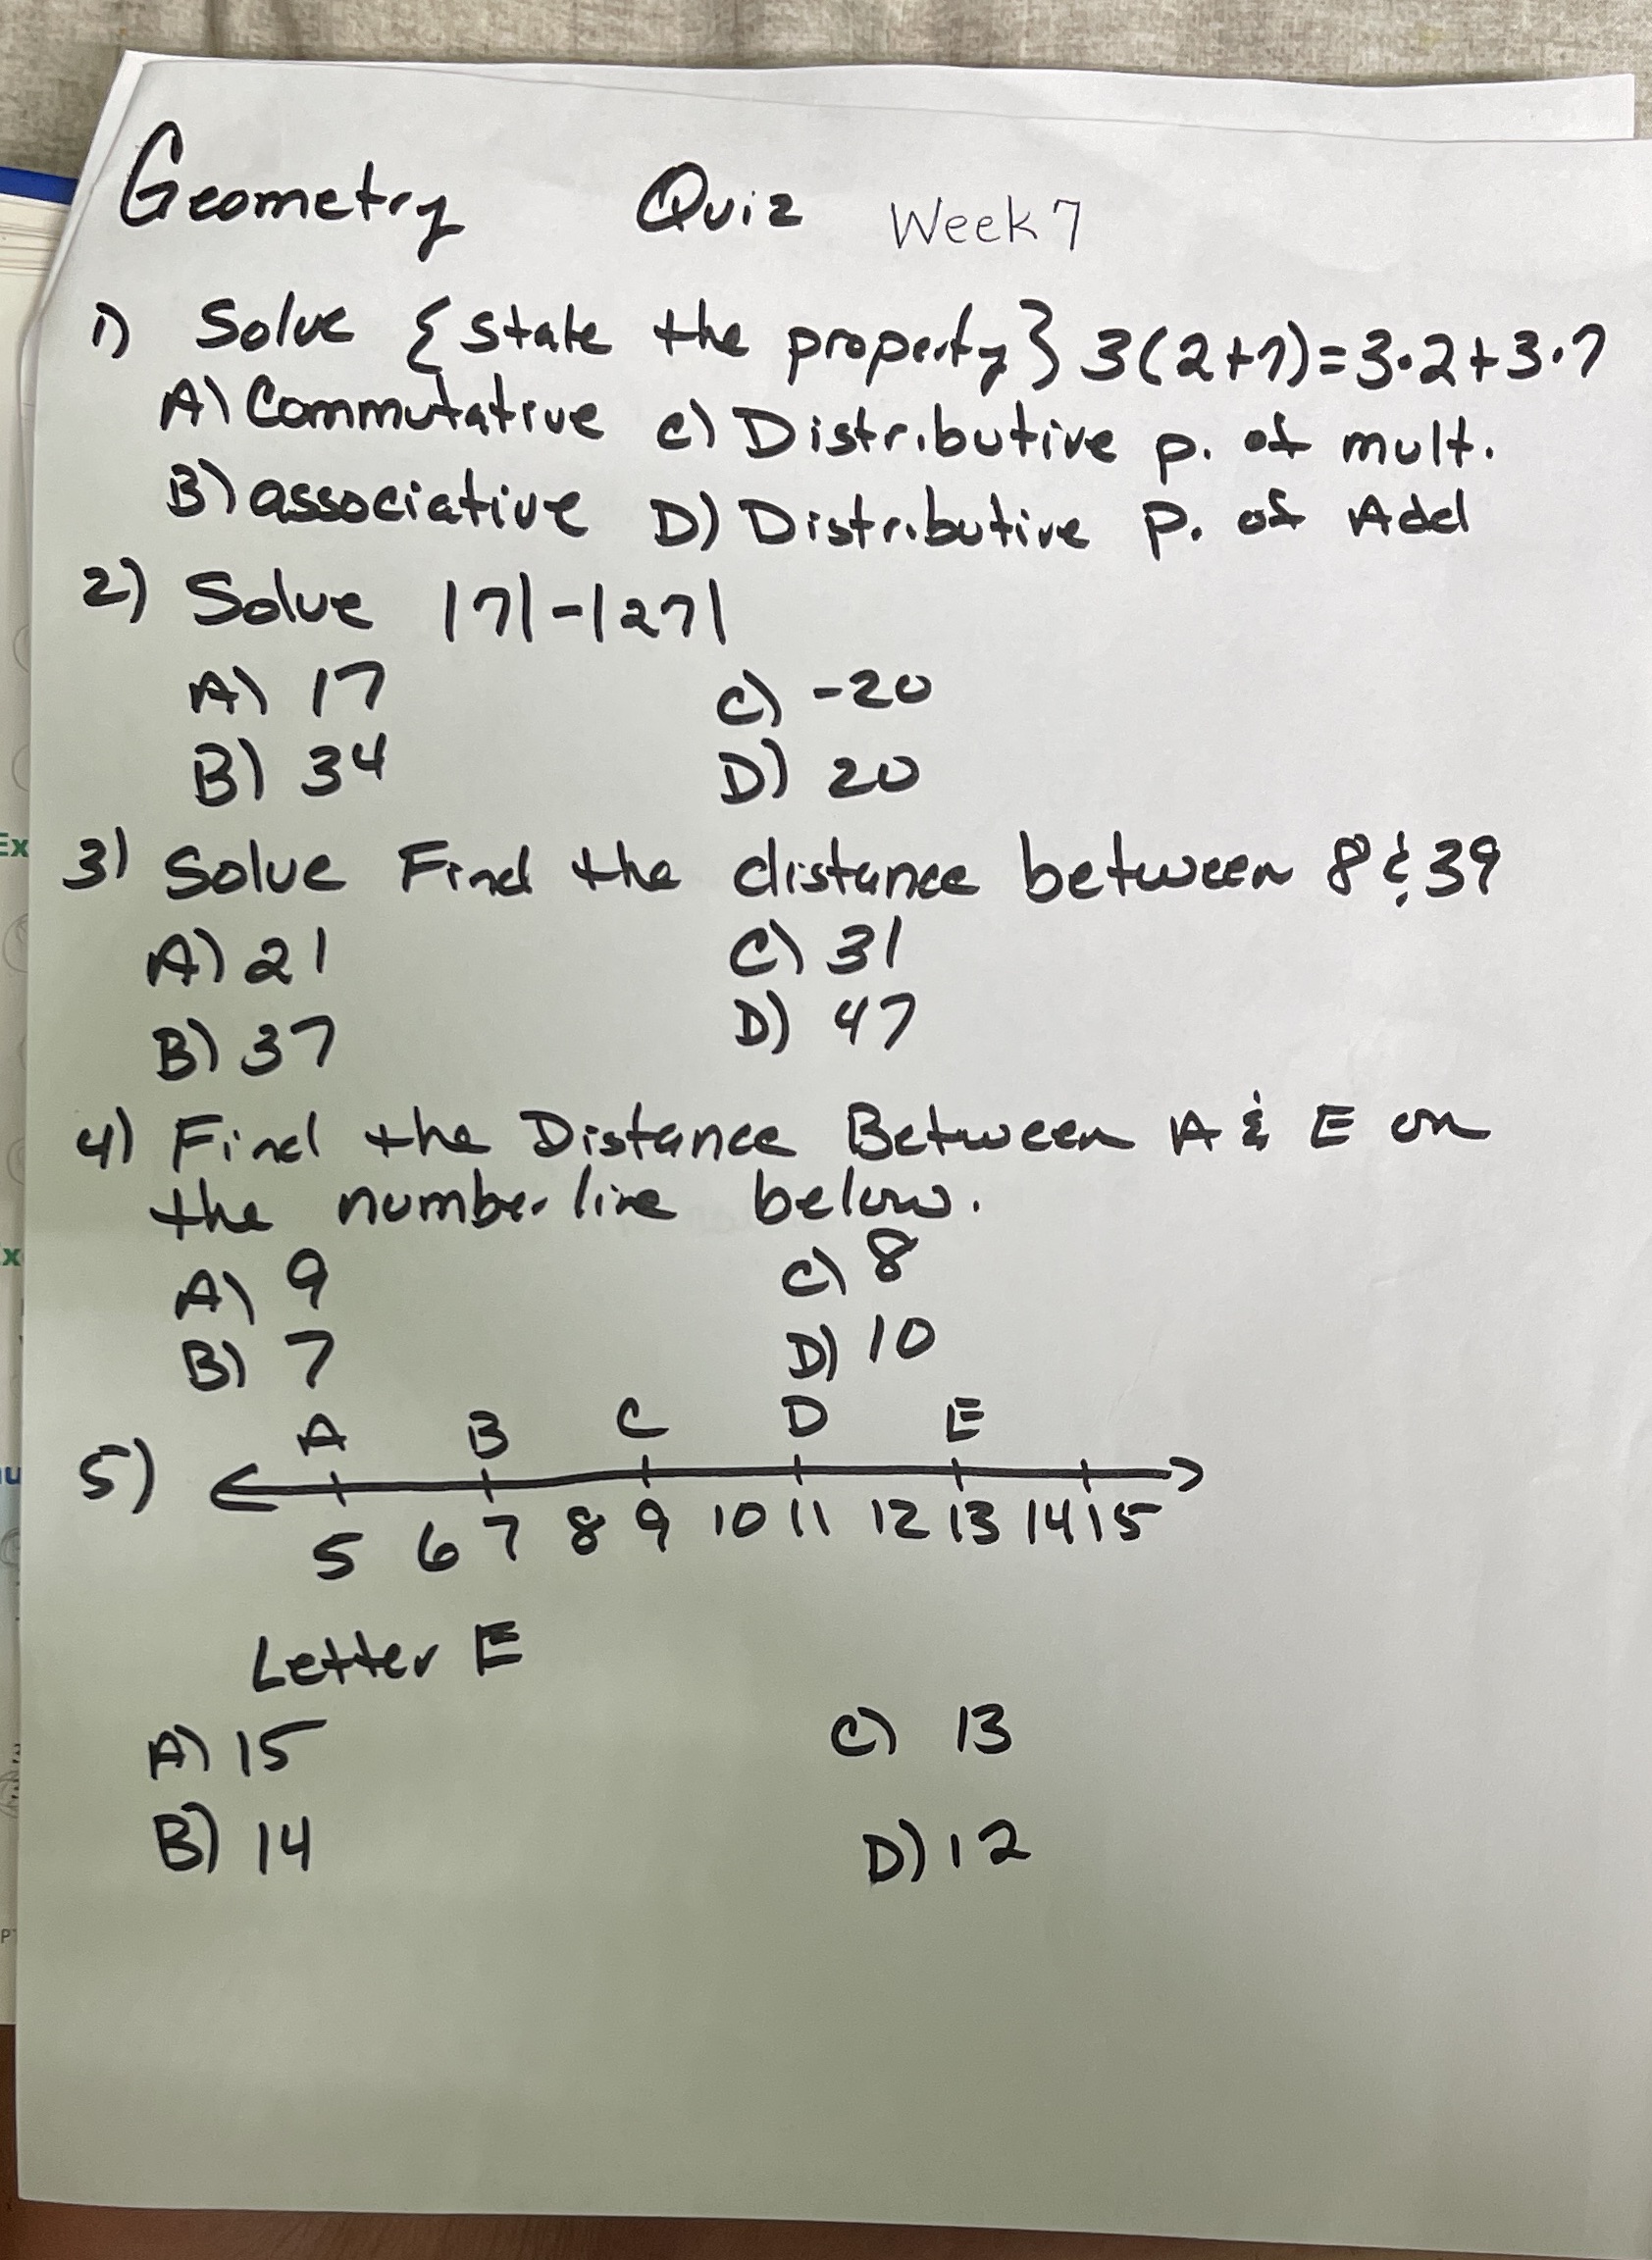 Geometry Quiz Week 7
1) Solve {state the property} 3(2+7)=3·2+3·7
A) Commutative C) Distributive p. of mult.
B) associative D) Distributive p. of Add
2) Solve |7|-|27|
A) 17 C) -20
B) 34 D) 20
3) Solve Find the distance between 8 & 39
A) 21 C) 31
B) 37 D) 47
4) Find the Distance Between A & E on
the number line below.
A) 9 C) 8
B) 7 D) 10
A B C D E
5)
5 6 7 8 9 10 11 12 13 14 15
Letter E
A) 15 C) 13
B) 14 D) 12